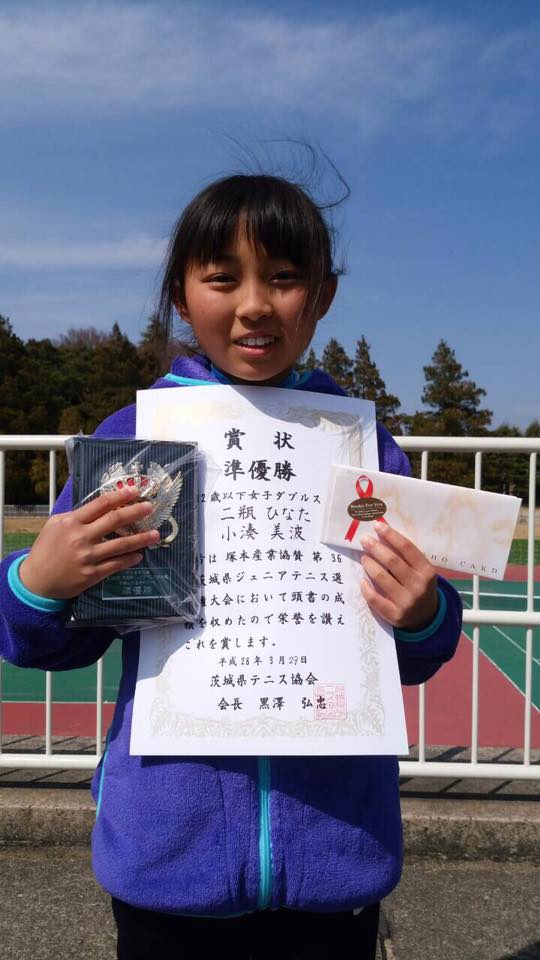 賞状
準優勝
2歳以下女子ダブルス
二瓶 ひなた
小湊 美波
は 塚本産業協賛 第36
茨城県ジュニアテニス選
権大会において頭書の成
を収めたので栄誉を讃え
これを賞します。
平成28年3月29日
茨城県テニス協会
会長 黒澤 弘忠
準優勝
Books For You
HO CARD